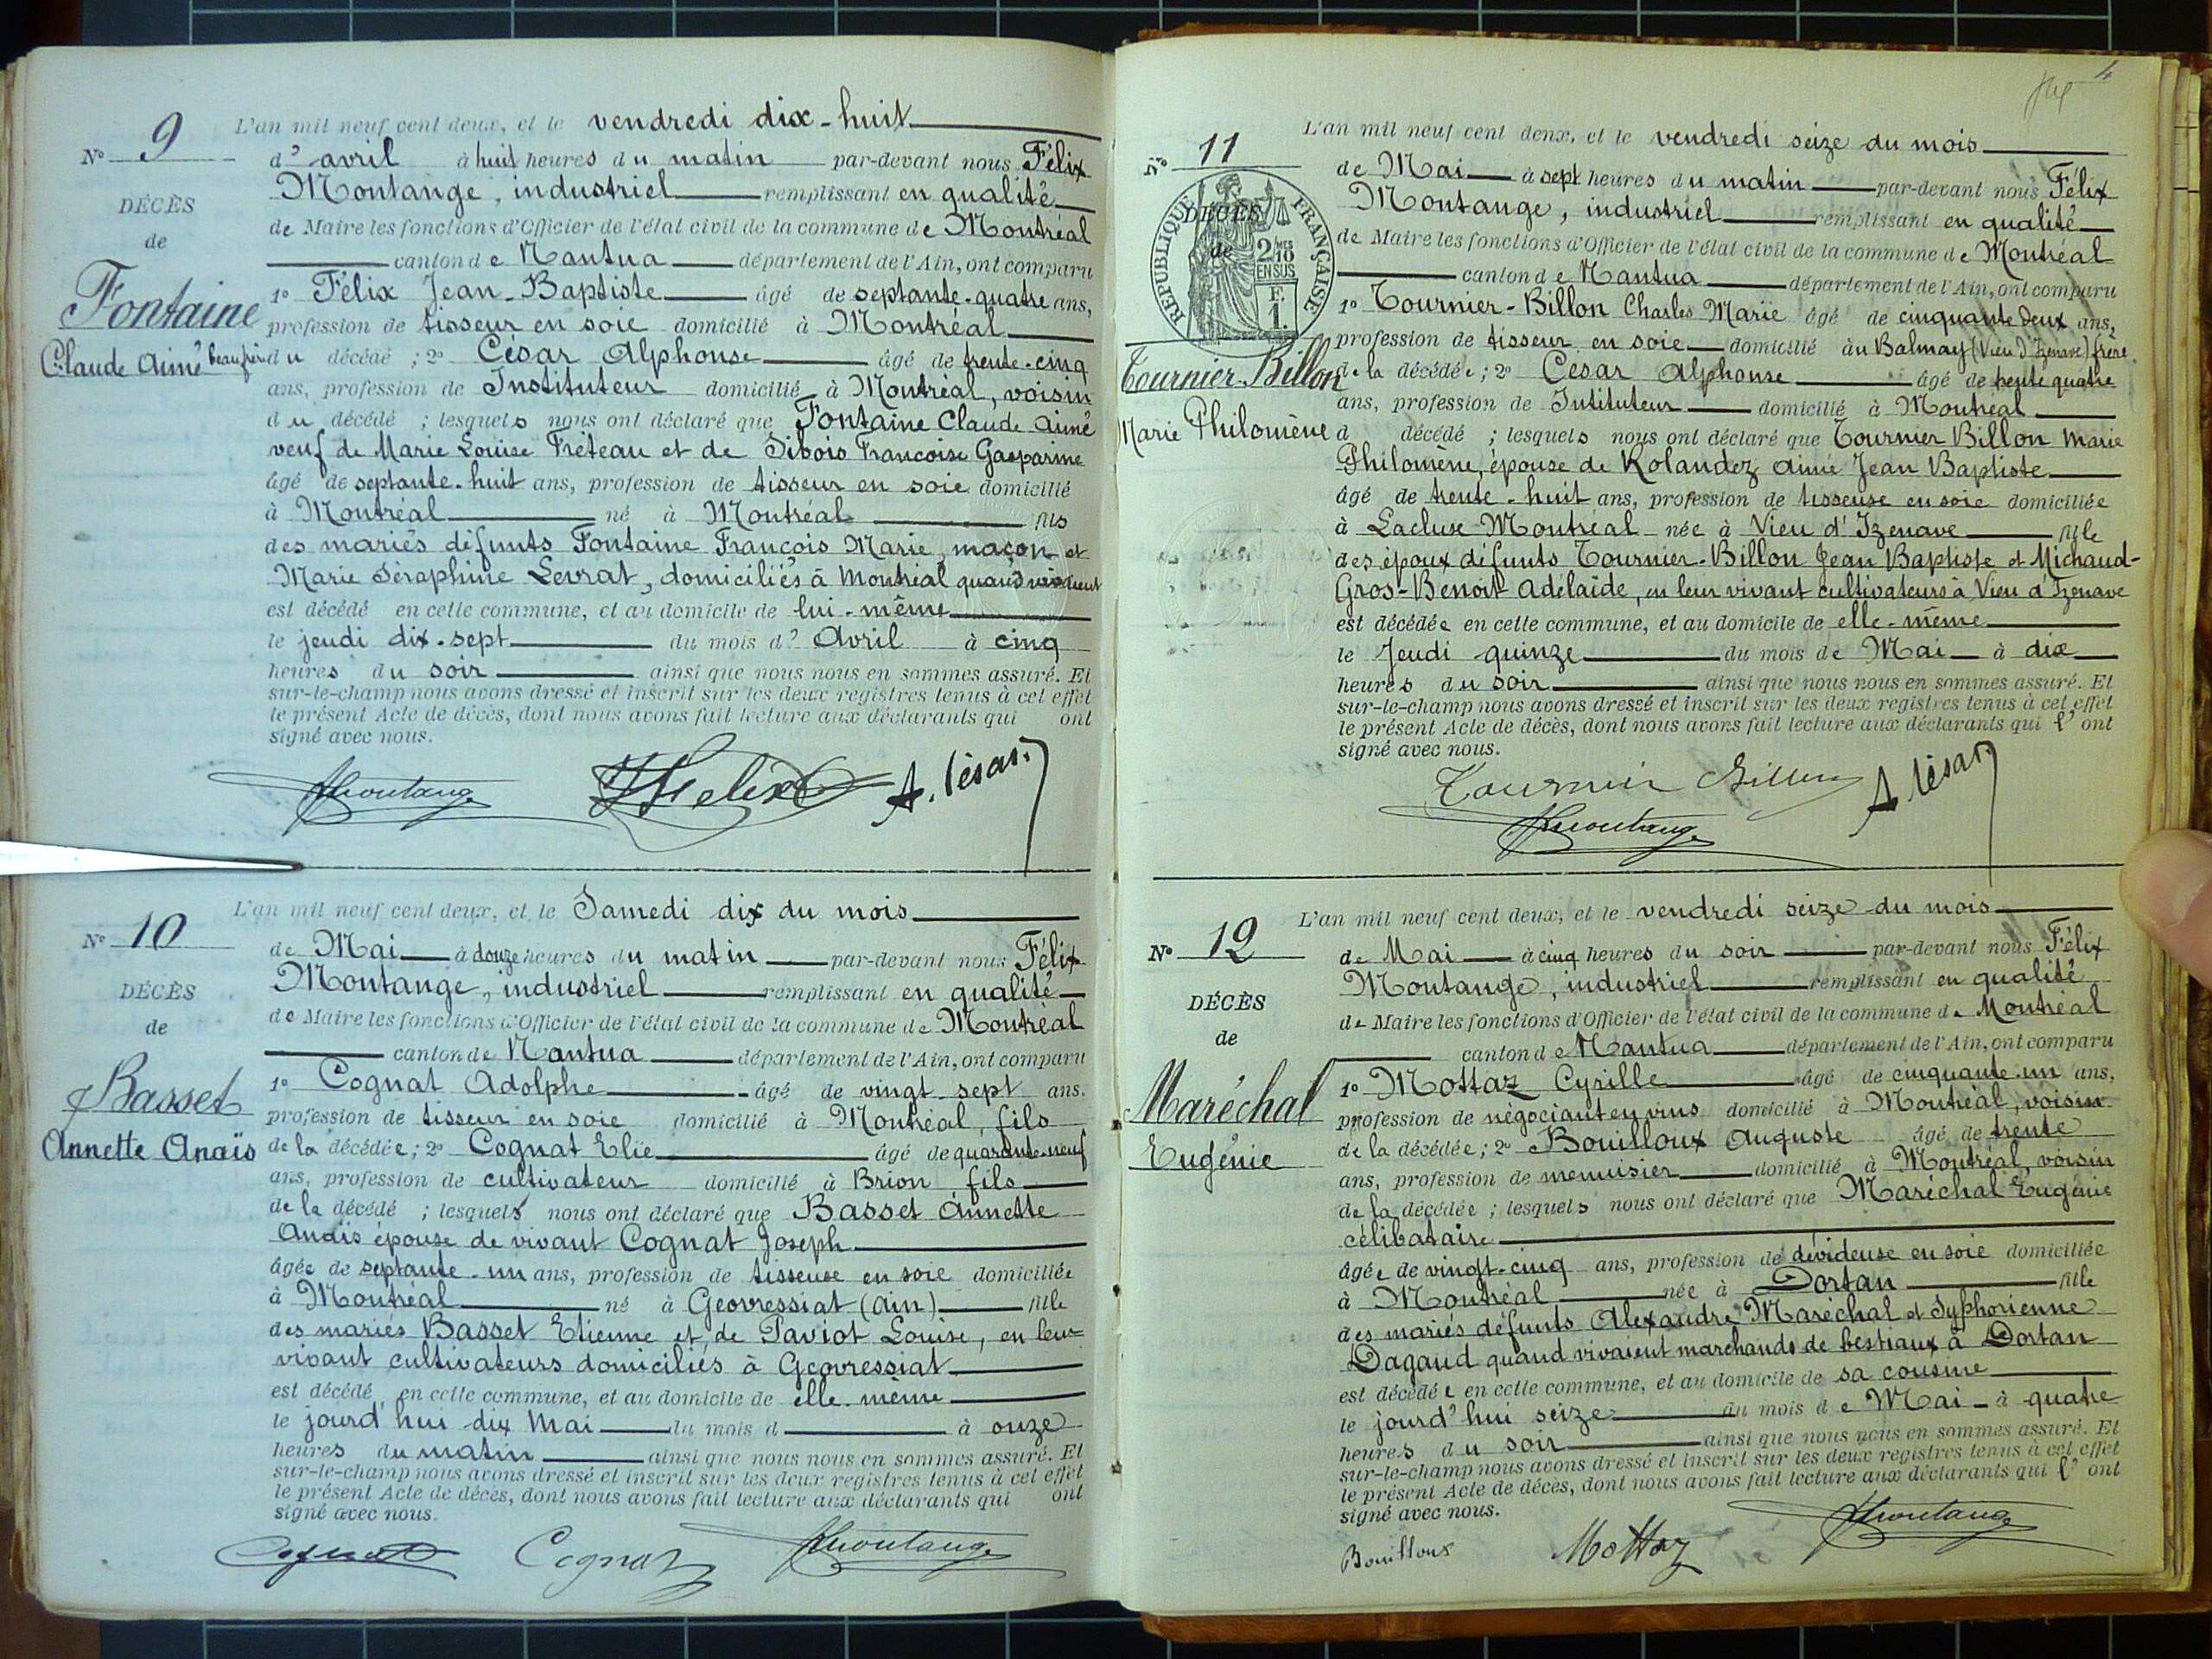 L'an mil neuf cent deux, et le vendredi dix-huit
No 9
d'avril à huit heures du matin par-devant nous Félix
Montange, industriel remplissant en qualité
DÉCÈS
de Maire les fonctions d'Officier de l'état civil de la commune de Montréal
de
canton de Nantua département de l'Ain, ont comparu
Fontaine
1º Félix Jean-Baptiste âgé de septante-quatre ans,
profession de tisseur en soie domicilié à Montréal
Claude Aimé
beau frère du décédé ; 2º César Alphonse âgé de trente-cinq
ans, profession de Instituteur domicilié à Montréal, voisin
du décédé ; lesquels nous ont déclaré que Fontaine Claude Aimé
veuf de Marie Louise Fréteau et de Sibois Francoise Gasparine
âgé de septante-huit ans, profession de tisseur en soie domicilié
à Montréal né à Montréal fils
des mariés défunts Fontaine François Marie, maçon et
Marie Séraphine Levrat, domiciliés à Montréal quand vivaient
est décédé en cette commune, et au domicile de lui-même
le jeudi dix-sept du mois d'Avril à cinq
heures du soir ainsi que nous nous en sommes assuré. Et
sur-le-champ nous avons dressé et inscrit sur les deux registres tenus à cet effet
le présent Acte de décès, dont nous avons fait lecture aux déclarants qui ont
signé avec nous.
Montange JFelix A. César
L'an mil neuf cent deux, et le Samedi dix du mois
No 10
de Mai à douze heures du matin par-devant nous Félix
Montange, industriel remplissant en qualité
DÉCÈS
de Maire les fonctions d'Officier de l'état civil de la commune de Montréal
de
canton de Nantua département de l'Ain, ont comparu
Basset
1º Cognat Adolphe âgé de vingt-sept ans.
profession de tisseur en soie domicilié à Montréal, fils
Annette Anaïs
de la décédée ; 2º Cognat Elie âgé de quarante-neuf
ans, profession de cultivateur domicilié à Brion fils
de la décédé ; lesquels nous ont déclaré que Basset Annette
Anaïs épouse de vivant Cognat Joseph
âgée de septante-un ans, profession de tisseuse en soie domiciliée
à Montréal né à Géovressiat (Ain) fille
des mariés Basset Etienne et de Paviot Louise, en leur
vivant cultivateurs domiciliés à Géovressiat
est décédé en cette commune, et au domicile de elle-même
le jourd'hui dix Mai du mois d à onze
heures du matin ainsi que nous nous en sommes assuré. Et
sur-le-champ nous avons dressé et inscrit sur les deux registres tenus à cet effet
le présent Acte de décès, dont nous avons fait lecture aux déclarants qui ont
signé avec nous.
Cognat Cognat Montange
4
L'an mil neuf cent deux, et le vendredi seize du mois
No 11
de Mai à sept heures du matin par-devant nous Félix
Montange, industriel remplissant en qualité
DÉCÈS
de
RÉPUBLIQUE FRANÇAISE
2/10 MES EN SUS
F. 1.
de Maire les fonctions d'Officier de l'état civil de la commune de Montréal
canton de Nantua département de l'Ain, ont comparu
1º Tournier-Billon Charles Marie âgé de cinquante deux ans,
profession de tisseur en soie domicilié au Balmay (Vieu d'Izenave) frère
Tournier-Billon
de la décédée ; 2º César Alphonse âgé de trente quatre
ans, profession de Intituteur domicilié à Montréal
Marie Philomène
d décédé ; lesquels nous ont déclaré que Tournier Billon Marie
Philomène, épouse de Rolandez Aimé Jean Baptiste
âgé de trente-huit ans, profession de tisseuse en soie domiciliée
à Lacluse-Montréal née à Vieu d'Izenave fille
des époux défunts Tournier-Billon Jean Baptiste et Michaud-
Gros-Benoit Adélaïde, en leur vivant cultivateurs à Vieu d'Izenave
est décédée en cette commune, et au domicile de elle-même
le Jeudi quinze du mois de Mai à dix
heures du soir ainsi que nous nous en sommes assuré. Et
sur-le-champ nous avons dressé et inscrit sur les deux registres tenus à cet effet
le présent Acte de décès, dont nous avons fait lecture aux déclarants qui l'ont
signé avec nous.
Tournier Billon A César
Montange
L'an mil neuf cent deux, et le vendredi seize du mois
No 12
de Mai à cinq heures du soir par-devant nous Félix
Montange, industriel remplissant en qualité
DÉCÈS
de Maire les fonctions d'Officier de l'état civil de la commune de Montréal
de
canton de Nantua département de l'Ain, ont comparu
Maréchal
1º Mottaz Cyrille âgé de cinquante-un ans,
profession de négociant en vins domicilié à Montréal, voisin
Eugénie
de la décédée ; 2º Bouilloux Auguste âgé de trente
ans, profession de menuisier domicilié à Montréal, voisin
de la décédée ; lesquels nous ont déclaré que Maréchal Eugénie
célibataire
âgée de vingt-cinq ans, profession de dévideuse en soie domiciliée
à Montréal née à Dortan fille
des mariés défunts Alexandre Maréchal et Syphorienne
Dagaud quand vivaient marchands de bestiaux à Dortan
est décédée en cette commune, et au domicile de sa cousine
le jourd'hui seize du mois de Mai à quatre
heures du soir ainsi que nous nous en sommes assuré. Et
sur-le-champ nous avons dressé et inscrit sur les deux registres tenus à cet effet
le présent Acte de décès, dont nous avons fait lecture aux déclarants qui l'ont
signé avec nous.
Bouilloux Mottaz Montange